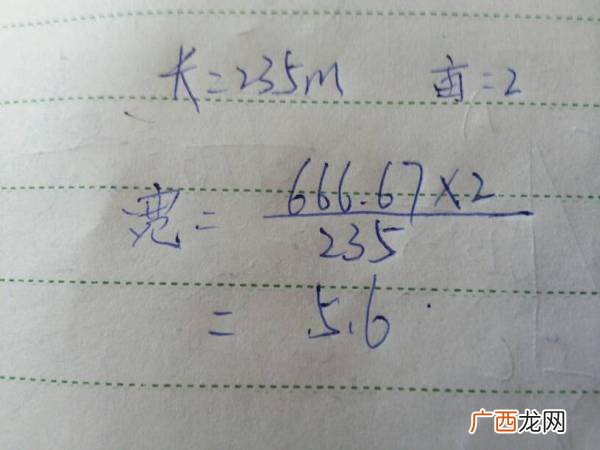 长=235m 亩=2
宽= 666.67×2
235
= 5.6
广西龙网